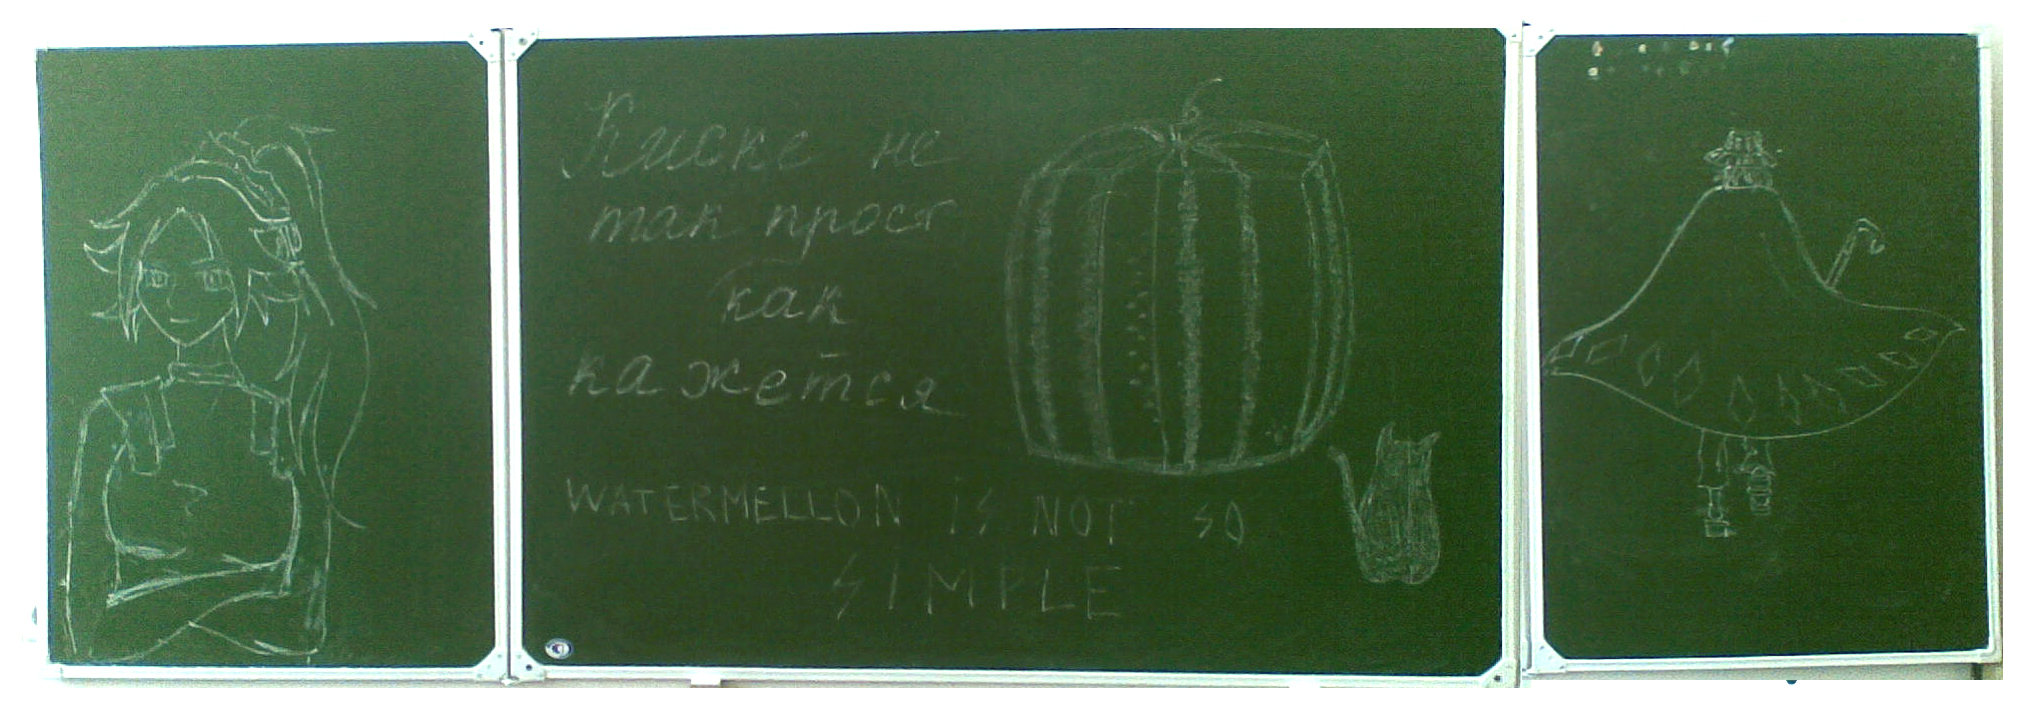 Киске не
так прост
как
кажется
WATERMELLON iS NOT SO
SIMPLE